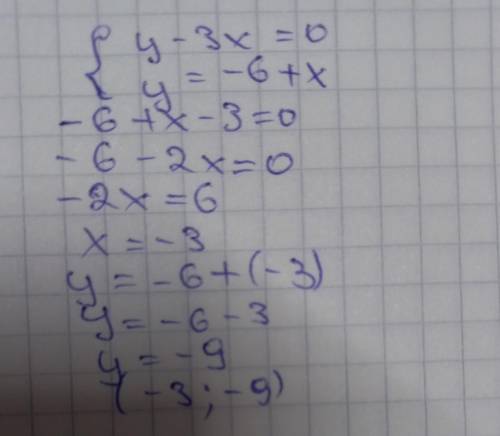 { y - 3x = 0
y = -6 + x
-6 + x - 3 = 0
-6 - 2x = 0
-2x = 6
x = -3
y = -6 + (-3)
y = -6 - 3
y = -9
(-3 ; -9)